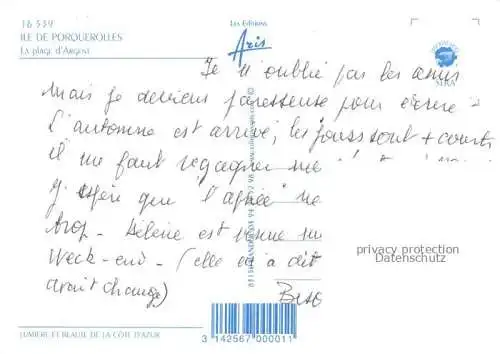 16 539
ILE DE PORQUEROLLES
LA PLAGE D'ARGENT
Les Editions
Aris
Je n'oublie pas les amis
Mais je deviens paresseuse pour écrire -
L'automne est arrivé, les jours sont + courts
il me faut regagner
J'espère que l'
trop - Hélène est venue un
Week-end - (elle m'a dit
avoir changé)
privacy protection
Datenschutz
LUMIERE ET BEAUTE DE LA COTE D'AZUR
3 142567 000011